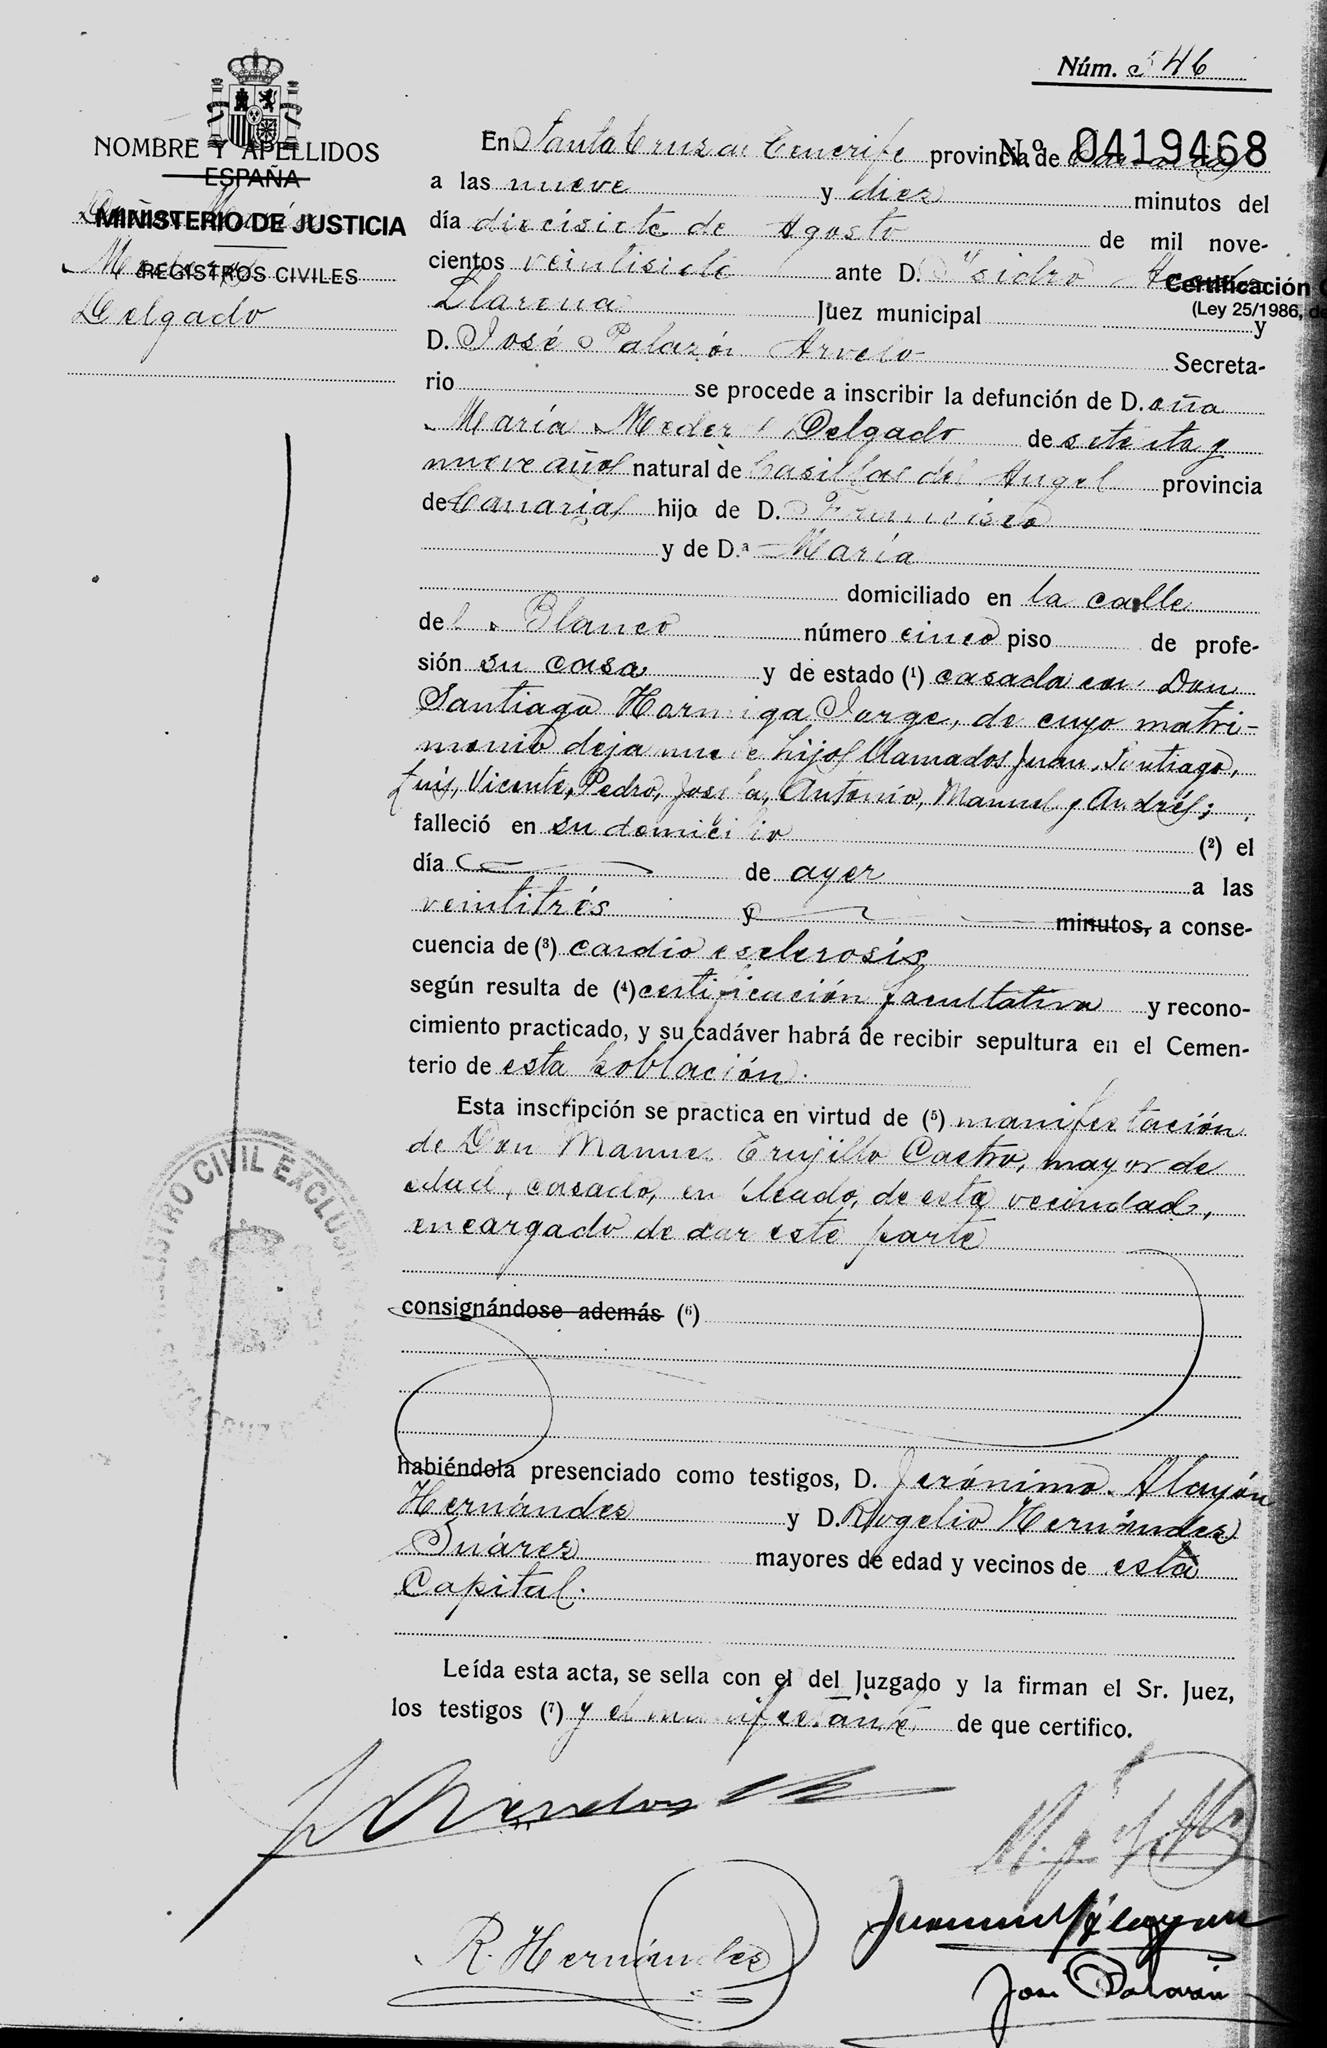 Núm. 546
NOMBRE Y APELLIDOS
ESPAÑA
MINISTERIO DE JUSTICIA
REGISTROS CIVILES
Doña María
Delgado
Nº 0419468
Certificación
(Ley 25/1986, de
En Santa Cruz de Tenerife provincia de Canarias
a las nueve y diez minutos del
día diecisiete de Agosto de mil nove-
cientos veintisiete ante D. Ysidro
Llarena Juez municipal y
D. José Palazón Arvelo Secreta-
rio se procede a inscribir la defunción de D.oña
María Meder Delgado de setenta y
nueve años natural de Casillas del Angel provincia
de Canarias hijo de D. Francisco
y de D.ª María
domiciliado en la calle
del Blanco número cinco piso de profe-
sión su casa y de estado (1) casada con Don
Santiago Hormiga Jorge, de cuyo matri-
monio deja nueve hijos llamados Juan, Santiago,
Luis, Vicente, Pedro, Josefa, Antonio, Manuel y Andrés;
falleció en su domicilio (2) el
día de ayer a las
veintitrés y minutos, a conse-
cuencia de (3) cardio esclerosis
según resulta de (4) certificación facultativa y recono-
cimiento practicado, y su cadáver habrá de recibir sepultura en el Cemen-
terio de esta población.
Esta inscripción se practica en virtud de (5) manifestación
de Don Manuel Trujillo Castro, mayor de
edad, casado, empleado, de esta vecindad,
encargado de dar este parte
consignándose además (6)
habiéndola presenciado como testigos, D. Jerónimo Alayón
Hernández y D. Rogelio Hernández
Suárez mayores de edad y vecinos de esta
Capital.
Leída esta acta, se sella con el del Juzgado y la firman el Sr. Juez,
los testigos (7) y el manifestante de que certifico.
REGISTRO CIVIL EXCLUSIVO
SANTA CRUZ DE
R. Hernández
José Palazón